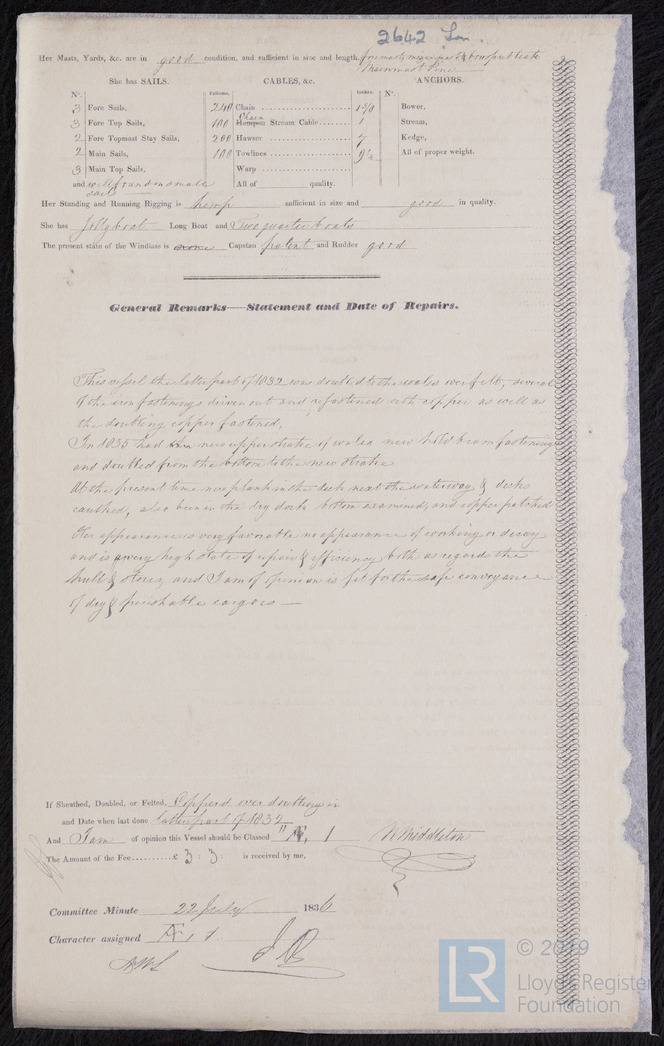 2642 Lon.
Her Masts, Yards, &c. are in good condition, and sufficient in size and length. foremast, mizenmast & bowsprit teake
Mainmast Pine
She has SAILS. CABLES, &c. ANCHORS.
N°. Fathoms. Inches. N°.
3 Fore Sails, 240 Chain 1 5/8 Bower,
3 Fore Top Sails, 100 Chain Hempen Stream Cable 1 Stream,
2 Fore Topmast Stay Sails, 200 Hawser 7 Kedge,
2 Main Sails, 100 Towlines All of proper weight.
3 Main Top Sails, Warp
and well found in small sails All of quality.
Her Standing and Running Rigging is hemp sufficient in size and good in quality.
She has Jollyboat Long Boat and Two quarter boats
The present state of the Windlass is none Capstan patent and Rudder good
General Remarks—Statement and Date of Repairs.
This vessel the latter part of 1832 was doubled to the wales over felt, several
of the iron fastenings driven out and refastened with copper as well as
the doubling copper fastened,
In 1835 had new upper strake of wales new hold beam fastening
and doubled from the bottom to the new strake
At the present time new plank in the deck next the waterway & decks
caulked, also been in the dry dock bottom examined, and copper patched
Her appearance is very favorable no appearance of working or decay
and is a very high state of repair & efficiency both as regards the
hull & stores, and I am of opinion is fit for the safe conveyance
of dry & perishable cargoes —
If Sheathed, Doubled, or Felted, Copperd over doubling in
and Date when last done latter part of 1832
And I am of opinion this Vessel should be Classed Æ, 1 Middleton
The Amount of the Fee..........£ 3 : 3 : is received by me,
Committee Minute 22 July 1836
Character assigned Æ 1
© 2019
LR
Lloyd's Register
Foundation